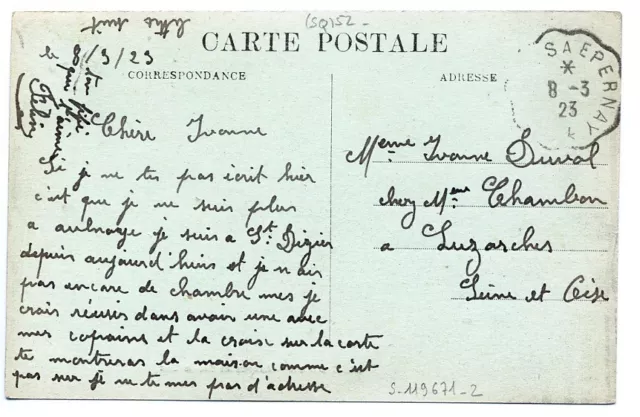 (SQ)52-
lettre suit
CARTE POSTALE
CORRESPONDANCE
ADRESSE
SAEPERNAY
*
8-3
23
/3/23
ton fifi
qui t'aime
Chère Ivonne
Si je ne tes pas ecrit hier
c'est que je ne suis plus
a aulnoye je suis a St Dizier
depuis aujourd'huis et je n'ais
pas encore de chambre mes je
crais réusir dans avoir une avec
mes copains et la croise sur la carte
te montreras la maison comme c'est
pas sur je ne te mes pas d'adresse
Meme Ivonne Duval
chez Meme Chambon
a Luzarches
Seine et Oise
S-119671-2